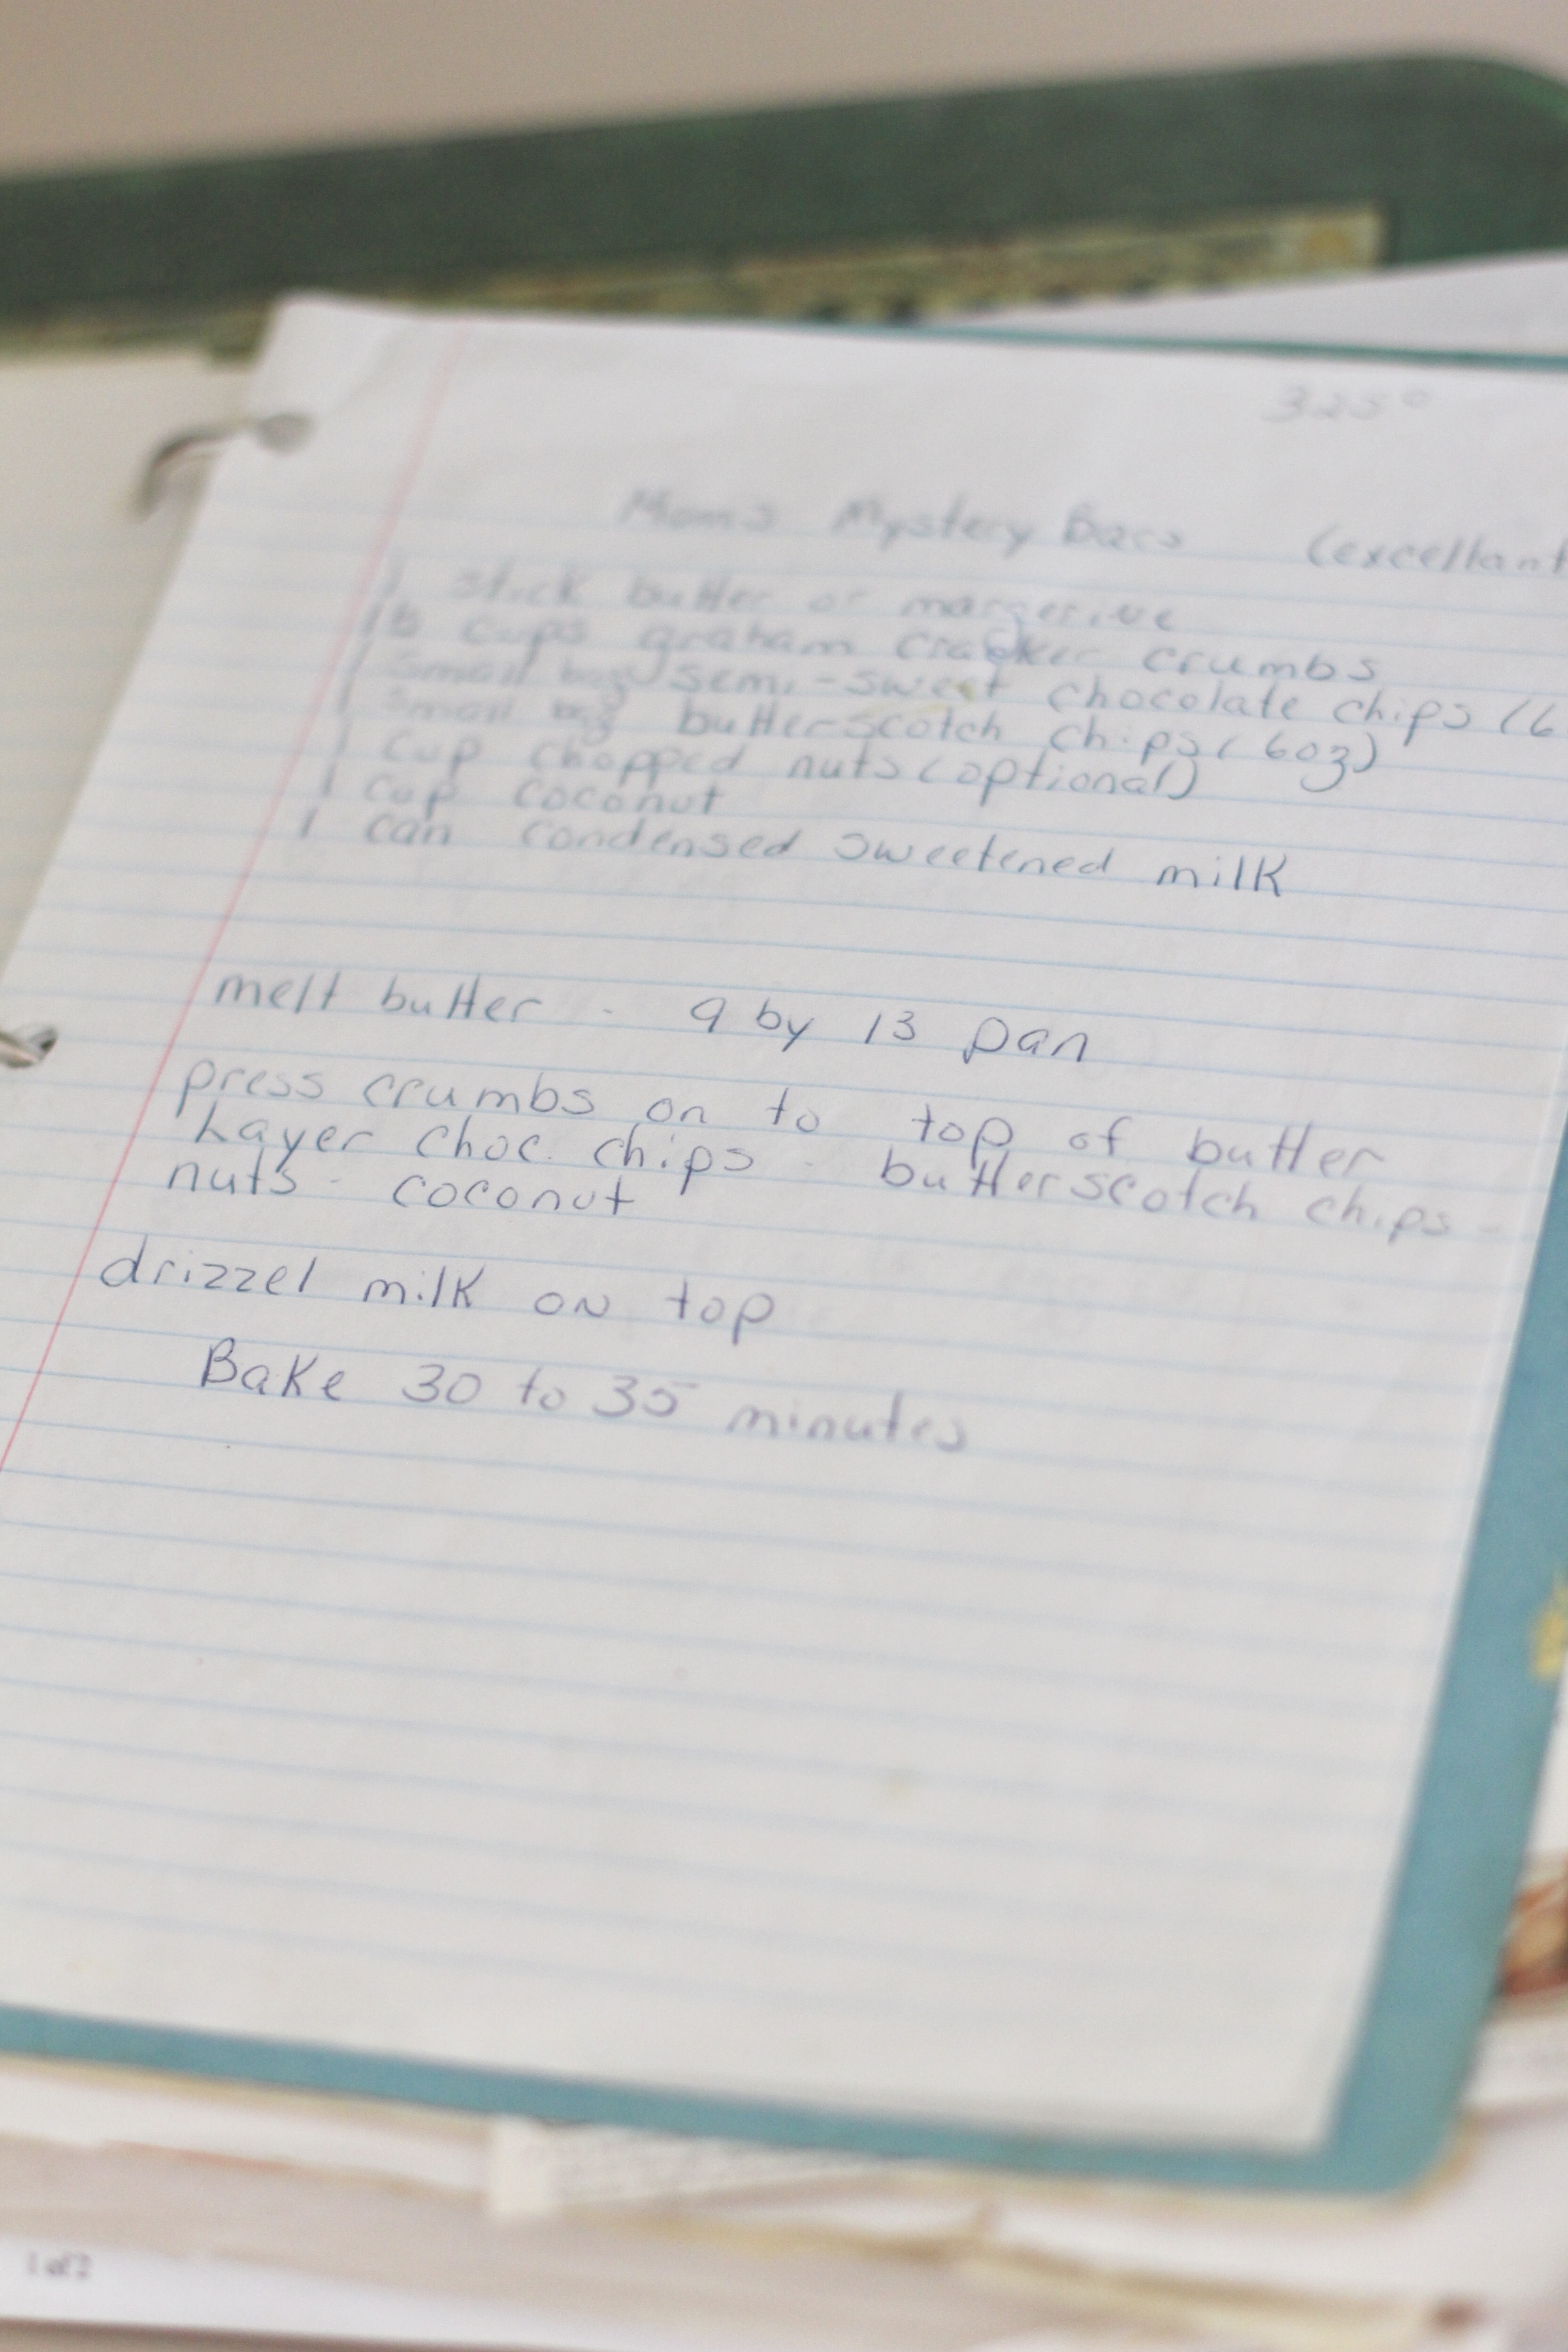 325°
Moms Mystery Bars (excellant
1 stick butter or margerine
cups graham cracker crumbs
1 small bag semi-sweet chocolate chips (6
1 small bag butterscotch chips (6oz)
1 cup chopped nuts (optional)
1 cup coconut
1 can condensed sweetened milk
melt butter - 9 by 13 pan
press crumbs on to top of butter
Layer choc. chips - butterscotch chips -
nuts - coconut
drizzel milk on top
Bake 30 to 35 minutes
1 of 2